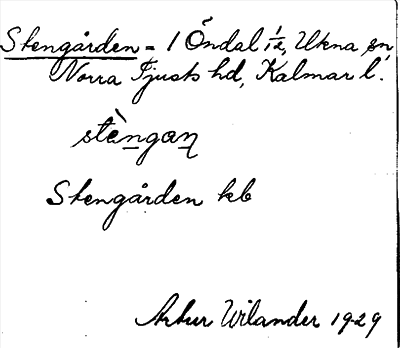 Stengården = 1 Öndal 1/2, Ukna sn,
Norra Tjusts hd, Kalmar l.
stèngaꞥ
Stengården kb
Artur Wilander 1929